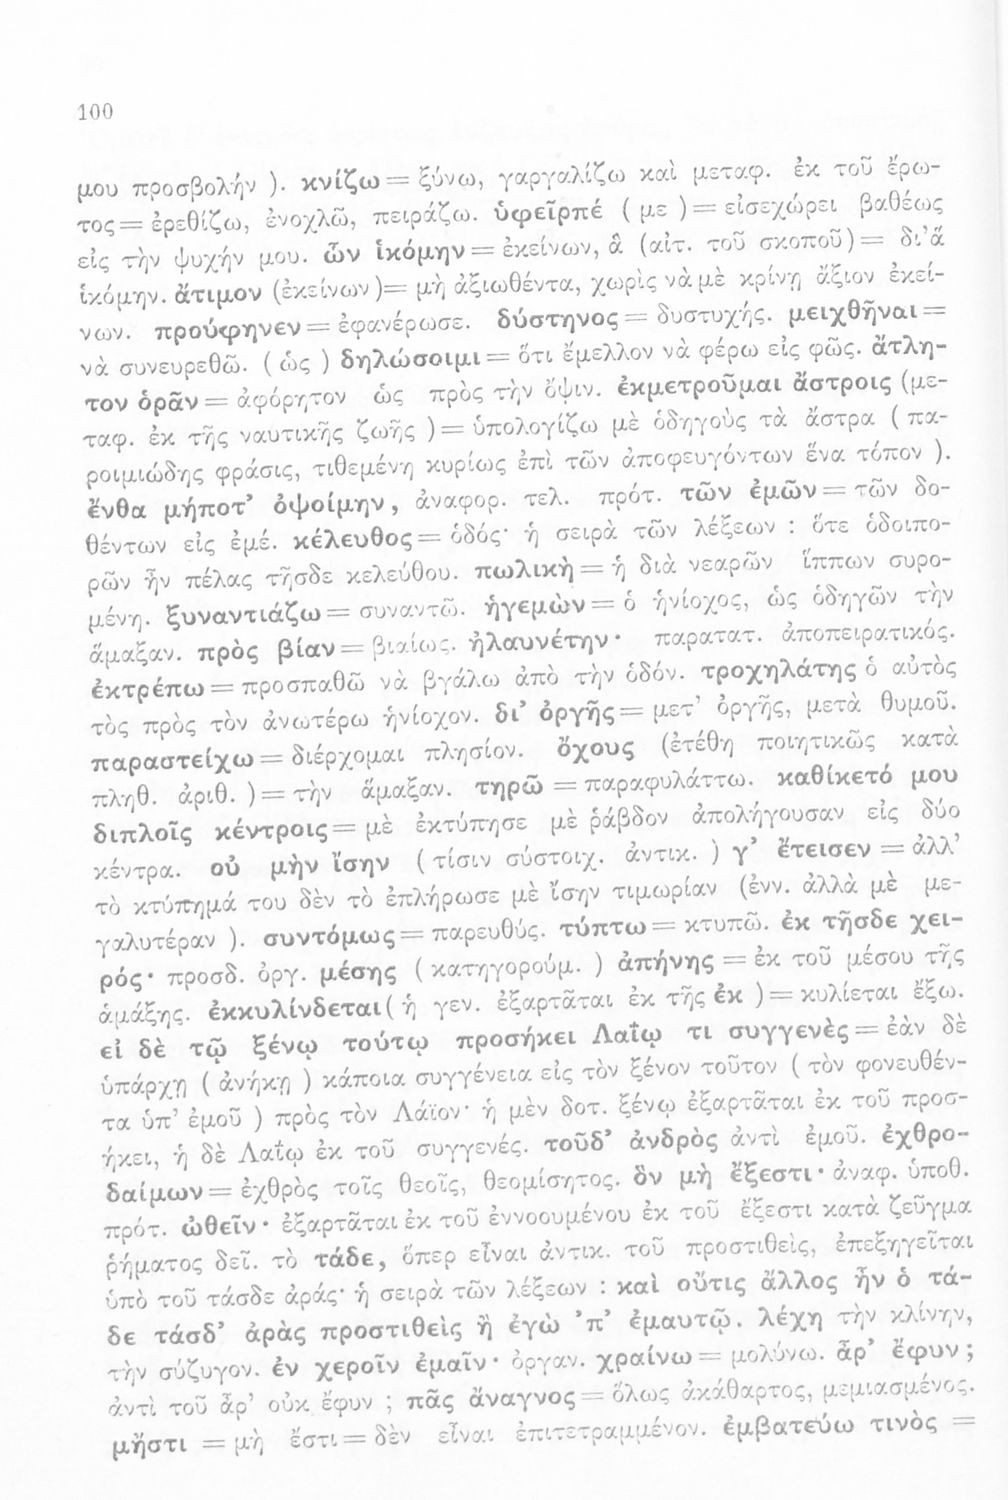 100
μου προσβολήν ). κνίζω = ξύνω, γαργαλίζω καὶ μεταφ. ἐκ τοῦ ἔρω-
τος = ἐρεθίζω, ἐνοχλῶ, πειράζω. ὑφεῖρπέ ( με ) = εἰσεχώρει βαθέως
εἰς τὴν ψυχήν μου. ὧν ἱκόμην = ἐκείνων, ἃ (αἰτ. τοῦ σκοποῦ) = δι’ἃ
ἱκόμην. ἄτιμον (ἐκείνων )= μὴ ἀξιωθέντα, χωρὶς νὰ μὲ κρίνῃ ἄξιον ἐκεί-
νων. προύφηνεν = ἐφανέρωσε. δύστηνος = δυστυχής. μειχθῆναι =
νὰ συνευρεθῶ. ( ὡς ) δηλώσοιμι = ὅτι ἔμελλον νὰ φέρω εἰς φῶς. ἄτλη-
τον ὁρᾶν = ἀφόρητον ὡς πρὸς τὴν ὄψιν. ἐκμετροῦμαι ἄστροις (με-
ταφ. ἐκ τῆς ναυτικῆς ζωῆς ) = ὑπολογίζω μὲ ὁδηγοὺς τὰ ἄστρα ( πα-
ροιμιώδης φράσις, τιθεμένη κυρίως ἐπὶ τῶν ἀποφευγόντων ἕνα τόπον ).
ἔνθα μήποτ’ ὀψοίμην, ἀναφορ. τελ. πρότ. τῶν ἐμῶν = τῶν δο-
θέντων εἰς ἐμέ. κέλευθος = ὁδός· ἡ σειρὰ τῶν λέξεων : ὅτε ὁδοιπο-
ρῶν ἦν πέλας τῆσδε κελεύθου. πωλικὴ = ἡ διὰ νεαρῶν ἵππων συρο-
μένη. ξυναντιάζω = συναντῶ. ἡγεμὼν = ὁ ἡνίοχος, ὡς ὁδηγῶν τὴν
ἅμαξαν. πρὸς βίαν = βιαίως. ἠλαυνέτην· παρατατ. ἀποπειρατικός.
ἐκτρέπω = προσπαθῶ νὰ βγάλω ἀπὸ τὴν ὁδόν. τροχηλάτης ὁ αὐτὸς
τὸς πρὸς τὸν ἀνωτέρω ἡνίοχον. δι’ ὀργῆς = μετ’ ὀργῆς, μετὰ θυμοῦ.
παραστείχω = διέρχομαι πλησίον. ὄχους (ἐτέθη ποιητικῶς κατὰ
πληθ. ἀριθ. ) = τὴν ἅμαξαν. τηρῶ = παραφυλάττω. καθίκετό μου
διπλοῖς κέντροις = μὲ ἐκτύπησε μὲ ῥάβδον ἀπολήγουσαν εἰς δύο
κέντρα. οὐ μὴν ἴσην ( τίσιν σύστοιχ. ἀντικ. ) γ’ ἔτεισεν = ἀλλ’
τὸ κτύπημά του δὲν τὸ ἐπλήρωσε μὲ ἴσην τιμωρίαν (ἐνν. ἀλλὰ μὲ με-
γαλυτέραν ). συντόμως = παρευθύς. τύπτω = κτυπῶ. ἐκ τῆσδε χει-
ρός· προσδ. ὀργ. μέσης ( κατηγορούμ. ) ἀπήνης = ἐκ τοῦ μέσου τῆς
ἁμάξης. ἐκκυλίνδεται( ἡ γεν. ἐξαρτᾶται ἐκ τῆς ἐκ ) = κυλίεται ἔξω.
εἰ δὲ τῷ ξένῳ τούτῳ προσήκει Λαΐῳ τι συγγενὲς = ἐὰν δὲ
ὑπάρχῃ ( ἀνήκῃ ) κάποια συγγένεια εἰς τὸν ξένον τοῦτον ( τὸν φονευθέν-
τα ὑπ’ ἐμοῦ ) πρὸς τὸν Λάϊον· ἡ μὲν δοτ. ξένῳ ἐξαρτᾶται ἐκ τοῦ προσ-
ήκει, ἡ δὲ Λαΐῳ ἐκ τοῦ συγγενές. τοῦδ’ ἀνδρὸς ἀντὶ ἐμοῦ. ἐχθρο-
δαίμων = ἐχθρὸς τοῖς θεοῖς, θεομίσητος. ὃν μὴ ἔξεστι· ἀναφ. ὑποθ.
πρότ. ὠθεῖν· ἐξαρτᾶται ἐκ τοῦ ἐννοουμένου ἐκ τοῦ ἔξεστι κατὰ ζεῦγμα
ῥήματος δεῖ. τὸ τάδε, ὅπερ εἶναι ἀντικ. τοῦ προστιθείς, ἐπεξηγεῖται
ὑπὸ τοῦ τάσδε ἀράς· ἡ σειρὰ τῶν λέξεων : καὶ οὔτις ἄλλος ἦν ὁ τά-
δε τάσδ’ ἀρὰς προστιθεὶς ἢ ἐγὼ ’π’ ἐμαυτῷ. λέχη τὴν κλίνην,
τὴν σύζυγον. ἐν χεροῖν ἐμαῖν· ὀργαν. χραίνω = μολύνω. ἆρ’ ἔφυν ;
ἀντὶ τοῦ ἆρ’ οὐκ ἔφυν ; πᾶς ἄναγνος = ὅλως ἀκάθαρτος, μεμιασμένος.
μἤστι = μὴ ἔστι = δὲν εἶναι ἐπιτετραμμένον. ἐμβατεύω τινὸς =